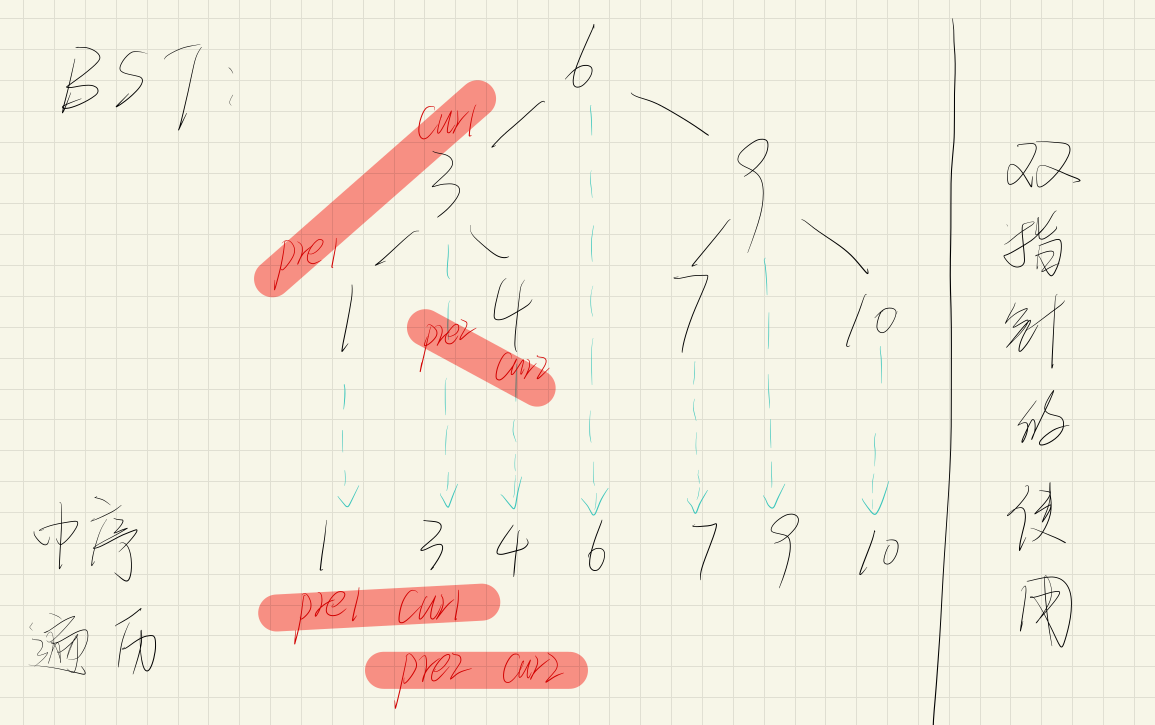 BST:
6
cur1
3 9
pre1
1 4 7 10
pre2
cur2
中序遍历
1 3 4 6 7 9 10
pre1 cur1
pre2 cur2
双指针的使用